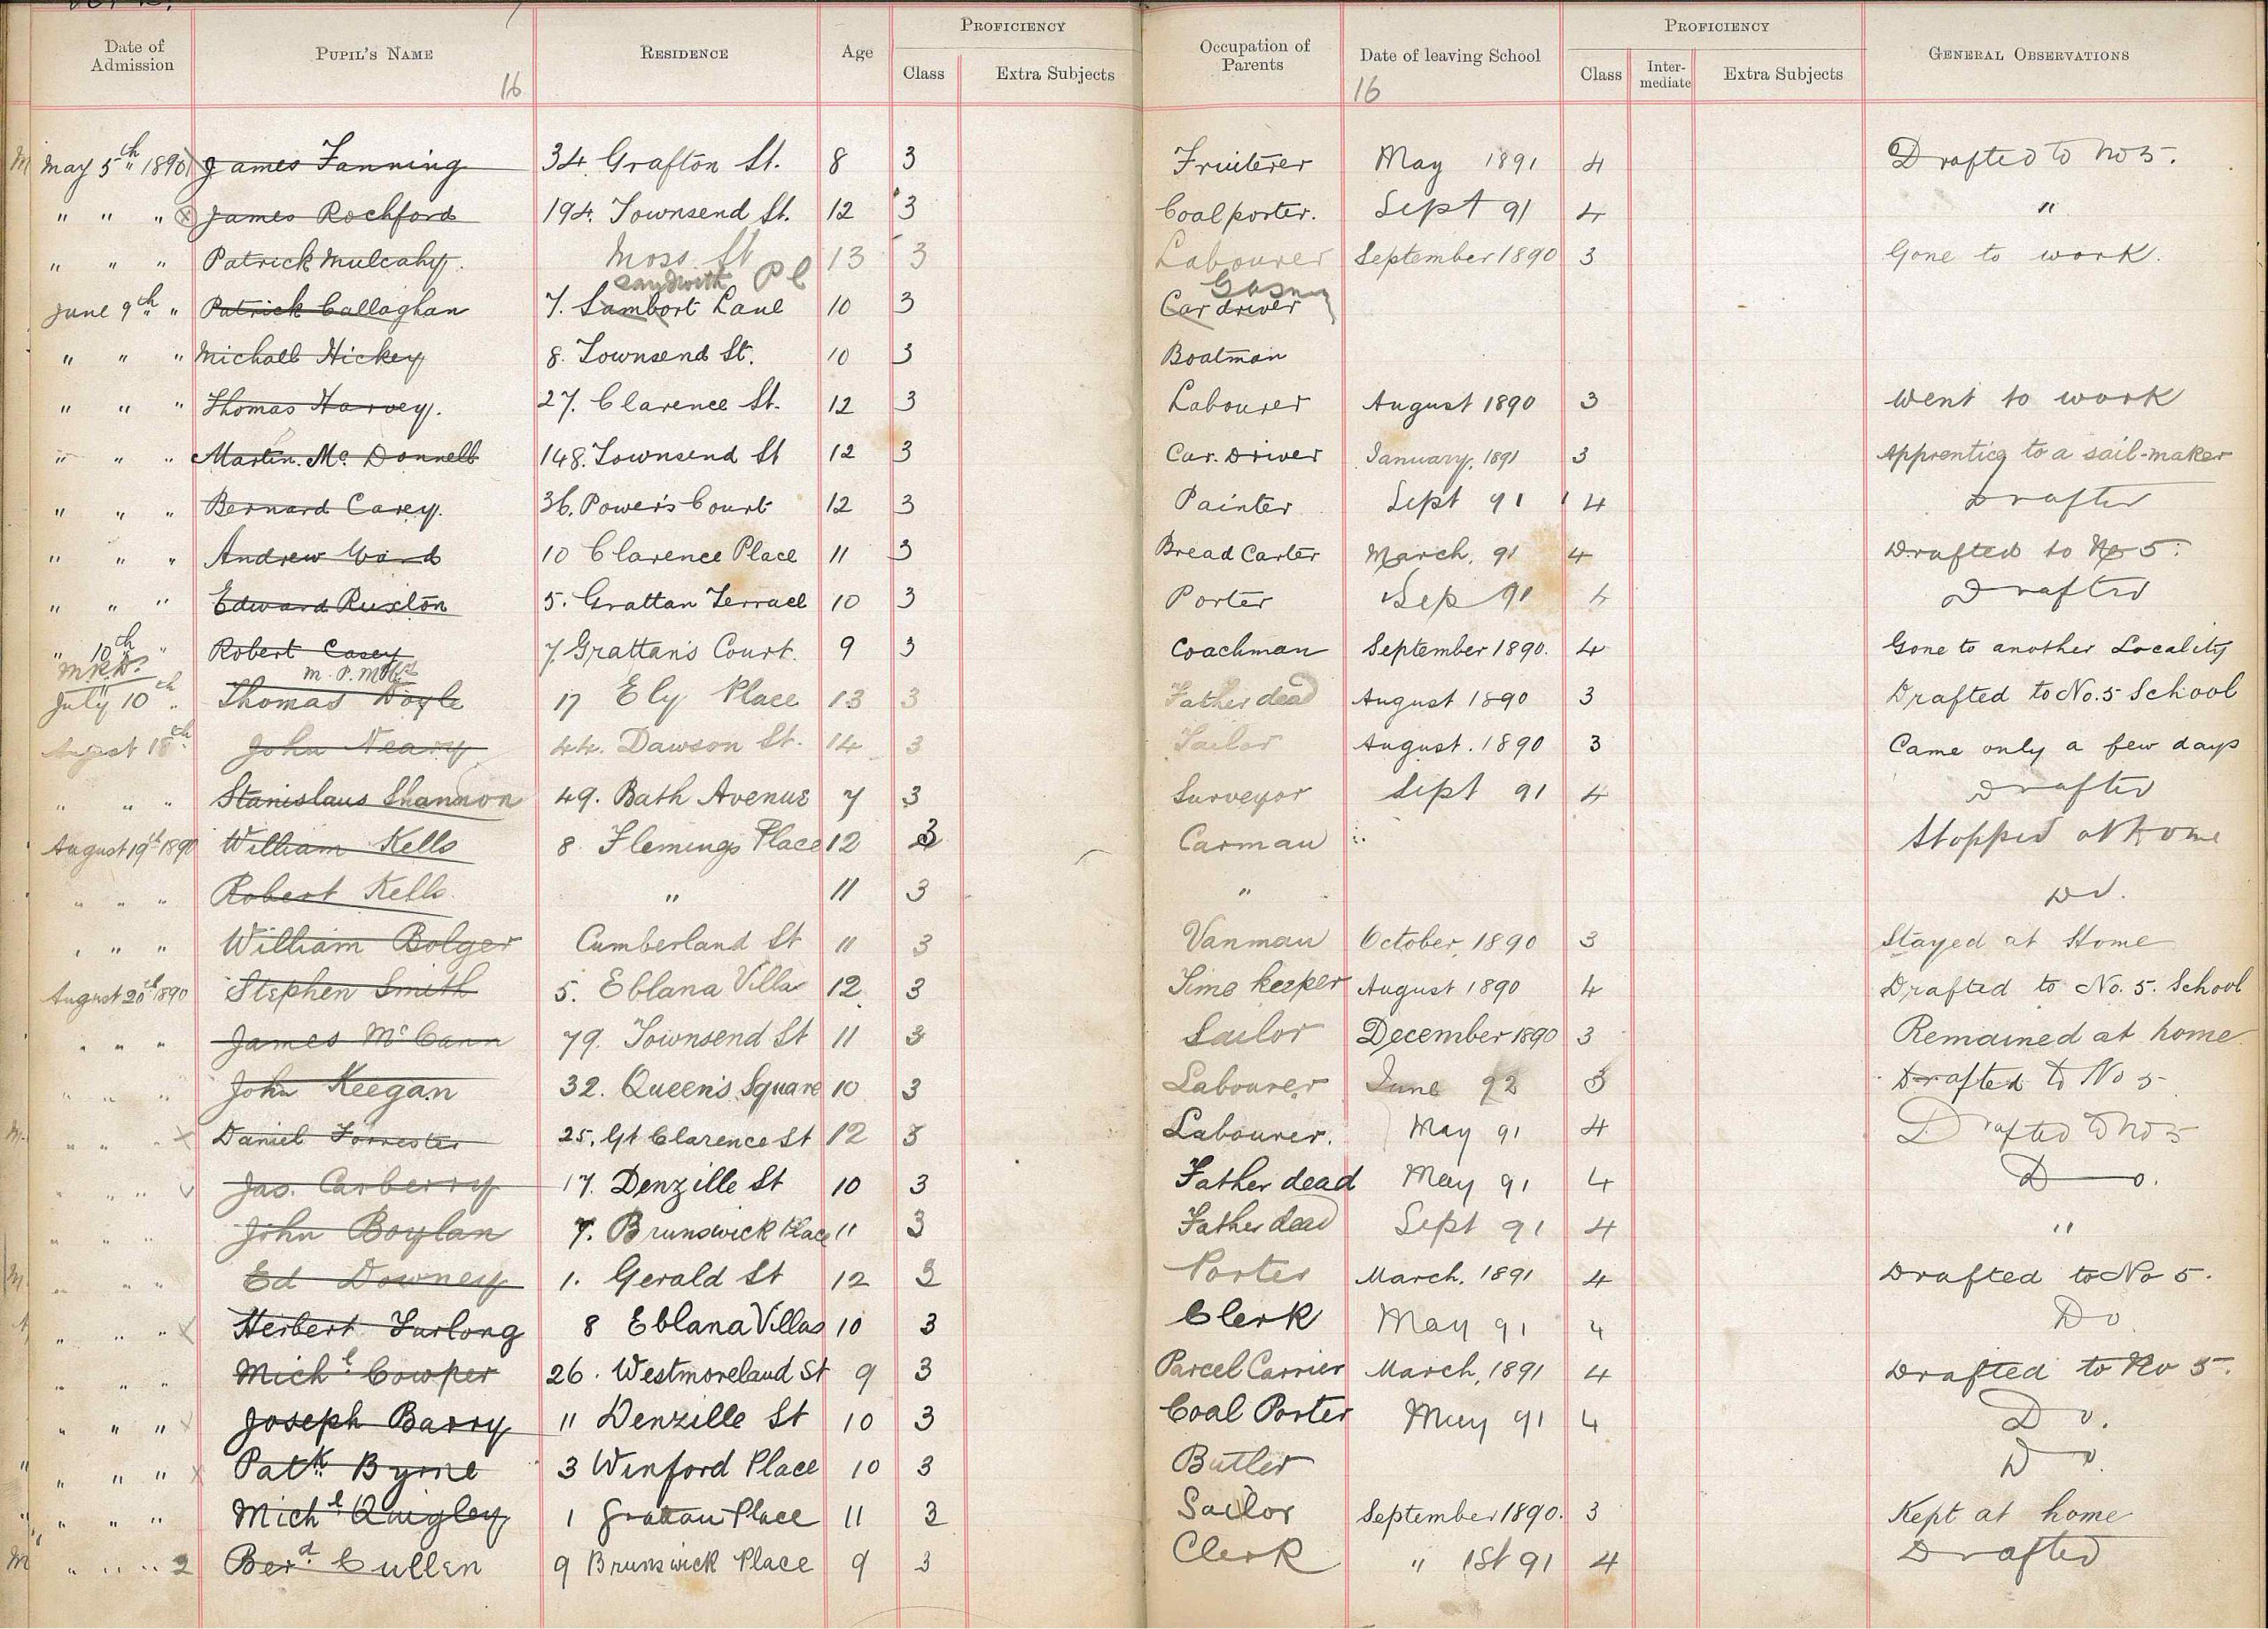 Date of Admission PUPIL'S NAME RESIDENCE Age PROFICIENCY Class Extra Subjects Occupation of Parents Date of leaving School PROFICIENCY Class Inter-mediate Extra Subjects GENERAL OBSERVATIONS
16 16
M May 5th 1890 James Fanning 34 Grafton St. 8 3 Fruiterer May 1891 4 Drafted to No 5.
" " " James Rochford 194. Townsend St. 12 3 Coalporter. Sept 91 4 "
" " " Patrick Mulcahy. Moss St 13 3 Labourer September 1890 3 Gone to work.
Sandwith Pl
June 9th " Patrick Callaghan 7. Lambert Lane 10 3 Car driver
" " " Michael Hickey 8. Townsend St. 10 3 Boatman
" " " Thomas Harvey. 27. Clarence St. 12 3 Labourer August 1890 3 Went to work
" " " Martin. Mc Donnell 148. Townsend St 12 3 Car. Driver January, 1891 3 Apprentice to a sail-maker
" " " Bernard Carey. 36. Power's Court 12 3 Painter Sept 91 4 Drafted
" " " Andrew Ward 10 Clarence Place 11 3 Bread Carter March, 91 4 Drafted to No 5.
" " " Edward Ruxton 5. Grattan Terrace 10 3 Porter Sep 91 4 Drafted
" 10th " Robert Casey 7. Grattan's Court. 9 3 Coachman September 1890. 4 Gone to another Locality
July 10th " Thomas Doyle 17 Ely Place 13 3 Father dead August 1890 3 Drafted to No. 5 School
August 18th John Neary 44. Dawson St. 14 3 Tailor August. 1890 3 Came only a few days
" " " Stanislaus Shannon 49. Bath Avenue 7 3 Surveyor Sept 91 4 Drafted
August 19th 1890 William Kells 8 Flemings Place 12 3 Carman Stopped at home
" " " Robert Kells. " 11 3 " Do.
" " " William Bolger Cumberland St 11 3 Vanman October, 1890 3 Stayed at Home
August 20th 1890 Stephen Smith 5. Eblana Villas 12 3 Time keeper August 1890 4 Drafted to No. 5. School
" " " James McCann 79. Townsend St 11 3 Sailor December 1890 3 Remained at home
" " " John Keegan 32. Queen's Square 10 3 Labourer June 92 3 Drafted to No 5
M " " " Daniel Forrester 25. Gt Clarence St 12 3 Labourer. May 91 4 Drafted to No 5
" " " Jas. Carberry 17. Denzille St 10 3 Father dead May 91 4 Do.
" " " John Boylan 7. Brunswick Place 11 3 Father dead Sept 91 4 "
M " " " Ed Downey 1. Gerald St 12 3 Porter March, 1891 4 Drafted to No 5.
" " " Herbert Furlong 8 Eblana Villas 10 3 Clerk May 91 4 Do.
" " " Michl Cowper 26. Westmoreland St 9 3 Parcel Carrier March, 1891 4 Drafted to No 5.
" " " Joseph Barry 11 Denzille St 10 3 Coal Porter May 91 4 Do.
" " " Patk Byrne 3 Winford Place 10 3 Butler Do.
" " " Michl Quigley 1 Grattan Place 11 3 Sailor September 1890. 3 Kept at home
M " " " 2 Berd Cullen 9 Brunswick Place 9 3 Clerk " 1st 91 4 Drafted